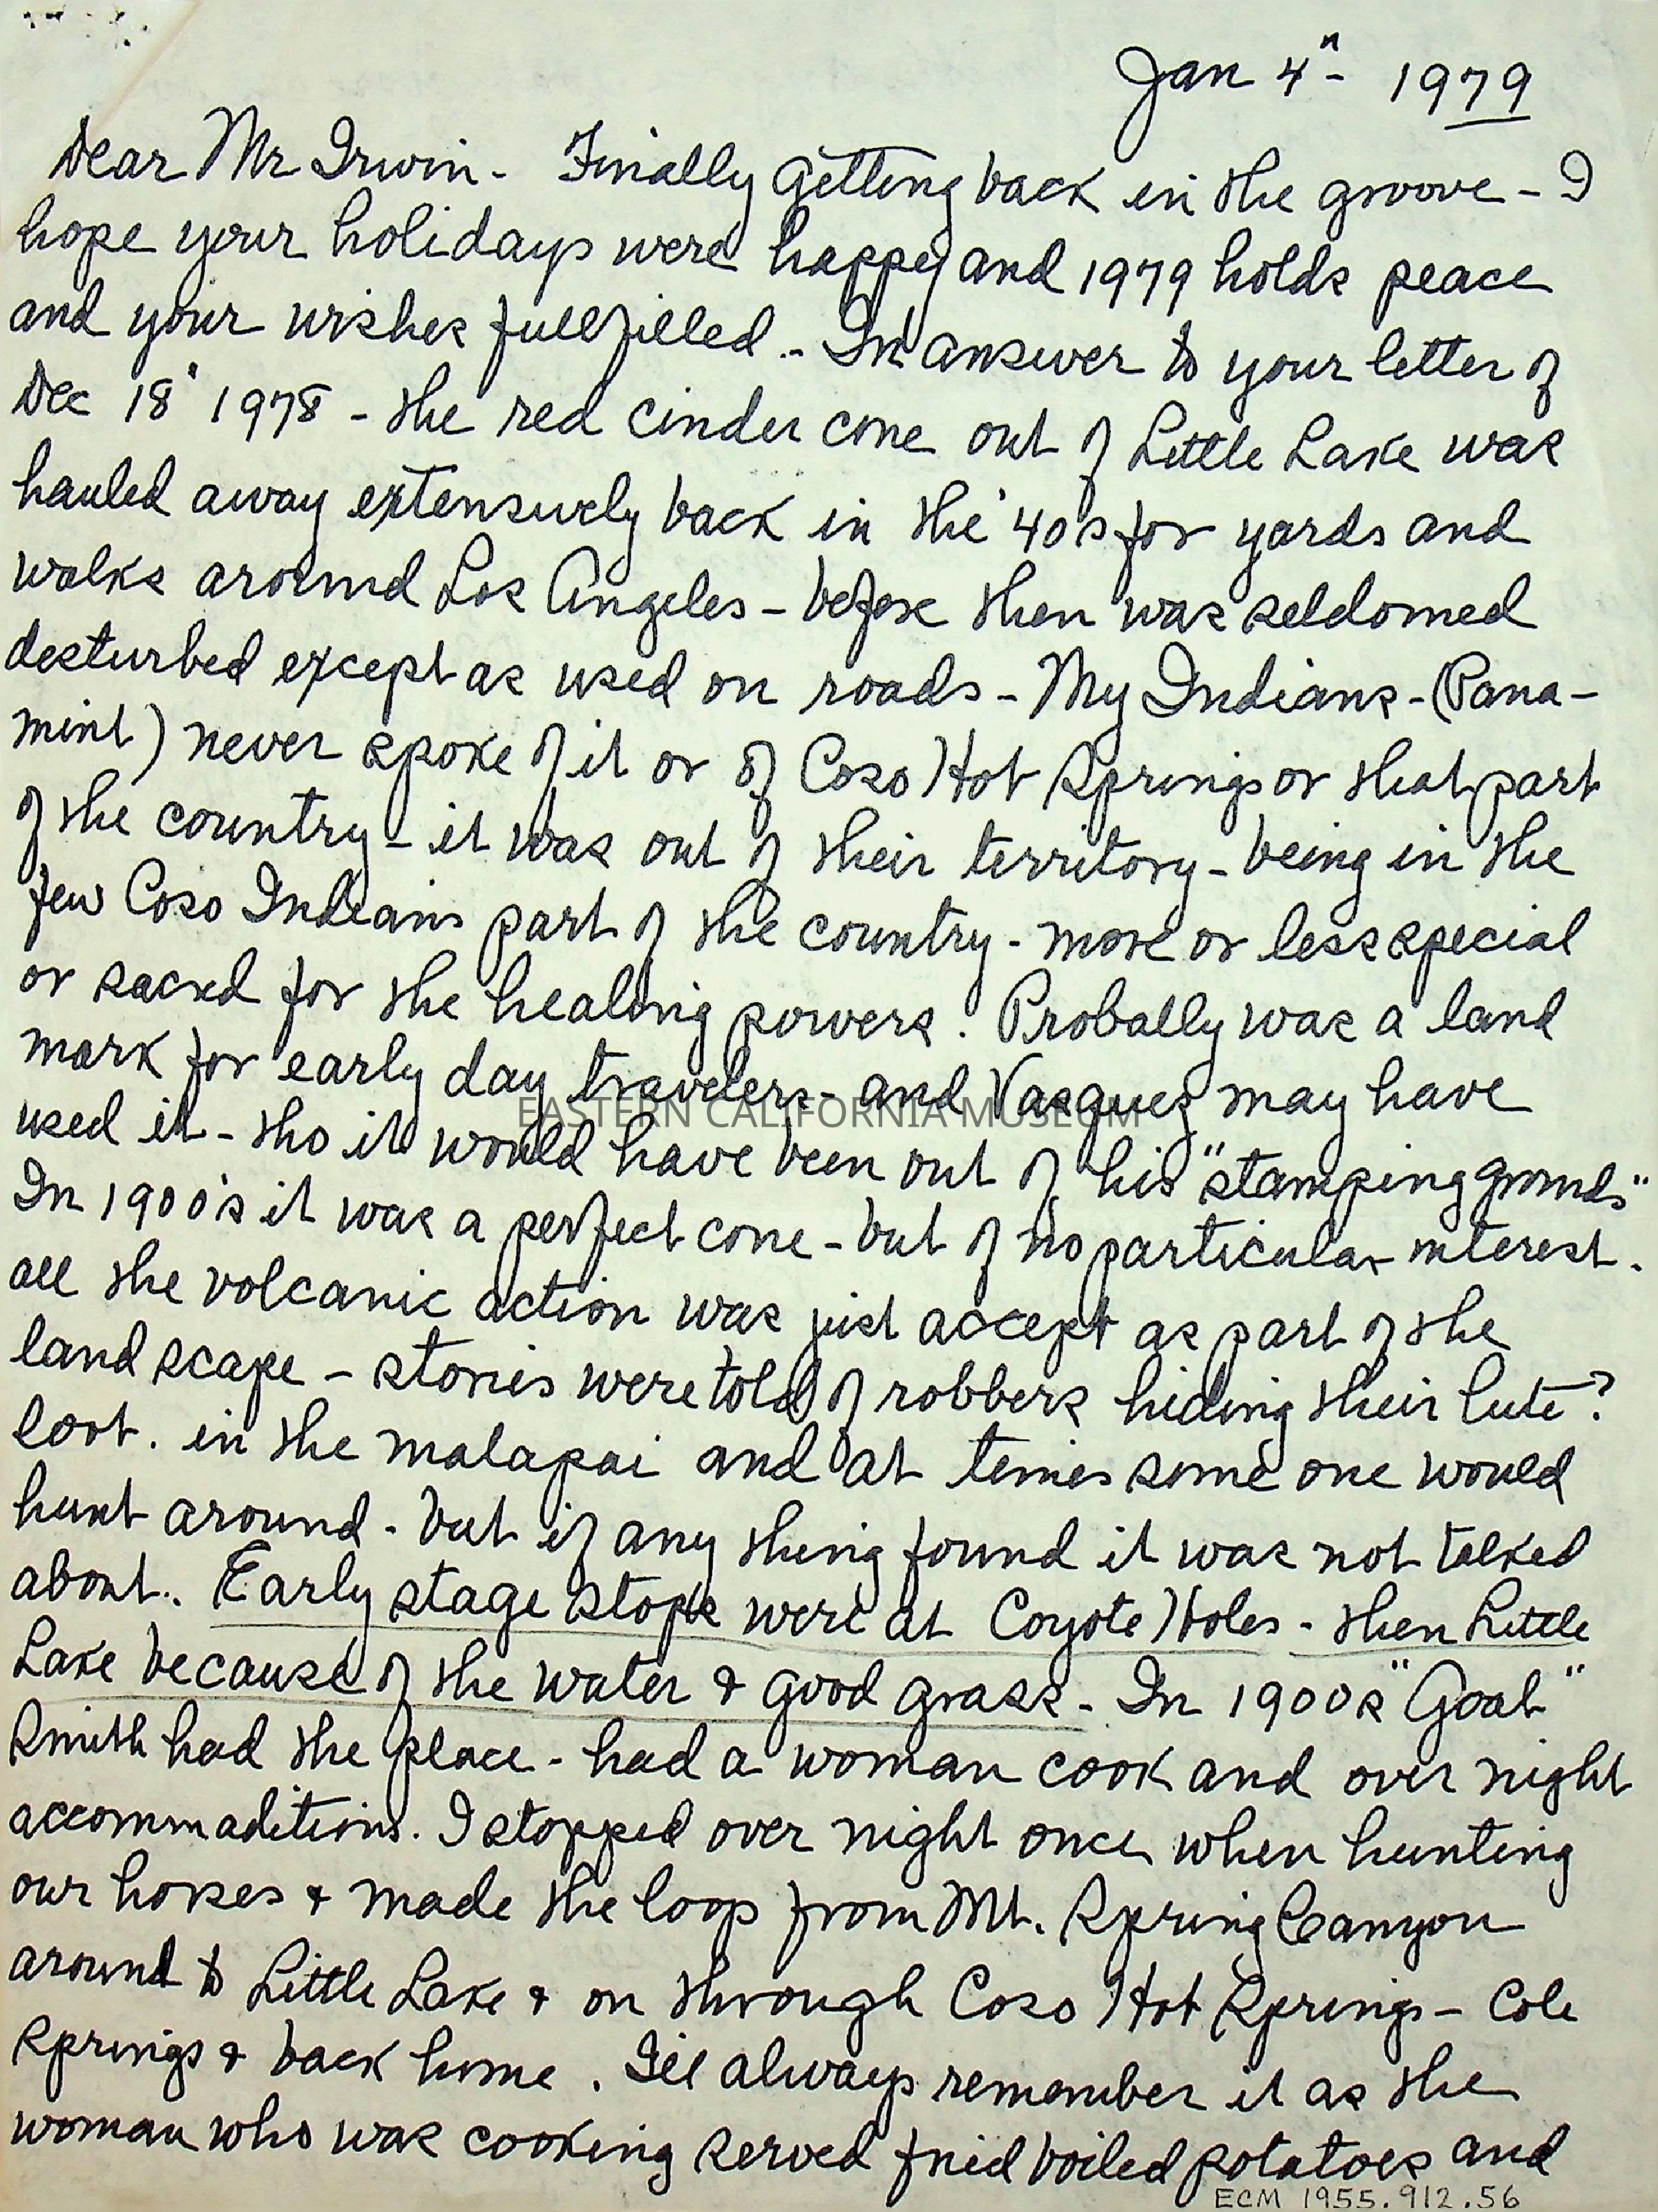 Jan 4th - 1979
Dear Mr Irwin - Finally getting back in the groove - I
hope your holidays were happy and 1979 holds peace
and your wishes fullfilled - In answer to your letter of
Dec 18' 1978 - the red cinder cone out of Little Lake was
hauled away extensively back in the '40's for yards and
walks around Los Angeles - before then was seldomed
desturbed except as used on roads - My Indians - (Pana-
mint) never spoke of it or of Coso Hot Springs or that part
of the country - it was out of their territory - being in the
few Coso Indians part of the country - more or less special
or sacred for the healing powers. Probally was a land
mark for early day travelers - and Vasquez may have
EASTERN CALIFORNIA MUSEUM
used it - tho it would have been out of his "stamping grounds"
In 1900's it was a perfect cone - but of no particular interest.
all the volcanic action was just accept as part of the
landscape - stories were told of robbers hiding their lute?
loot. in the malapai and at times some one would
hunt around - but if any thing found it was not talked
about. Early stage stops were at Coyote Holes - then Little
Lake because of the water & good grass - In 1900s "Goat"
Smith had the place - had a woman cook and over night
accommaditions. I stopped over night once when hunting
our horses & made the loop from Mt. Spring Canyon
around to Little Lake & on through Coso Hot Springs - Cole
Springs & back home. I'll always remember it as the
woman who was cooking served fried boiled potatoes and
ECM 1955.912.56